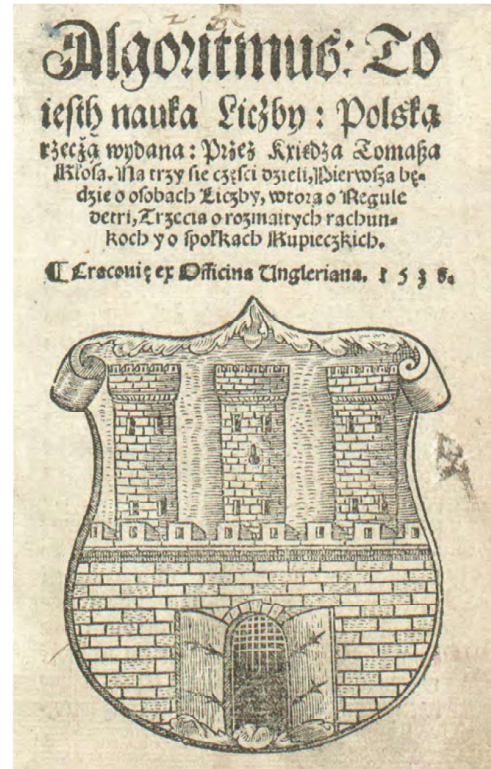 Algoritmus: To
iesth nauka Liczby: Polską
rzeczą wydana: Przez Kxiędza Tomaßa
Kłosa. Na trzy sie części dzieli, Pierwsza bę-
dzie o osobach Liczby, wtora o Regule
detri, Trzecia o rozmaitych rachun-
koch y o społkach Kupieczkich.
¶ Cracovię ex Officina Ungleriana. 1538.